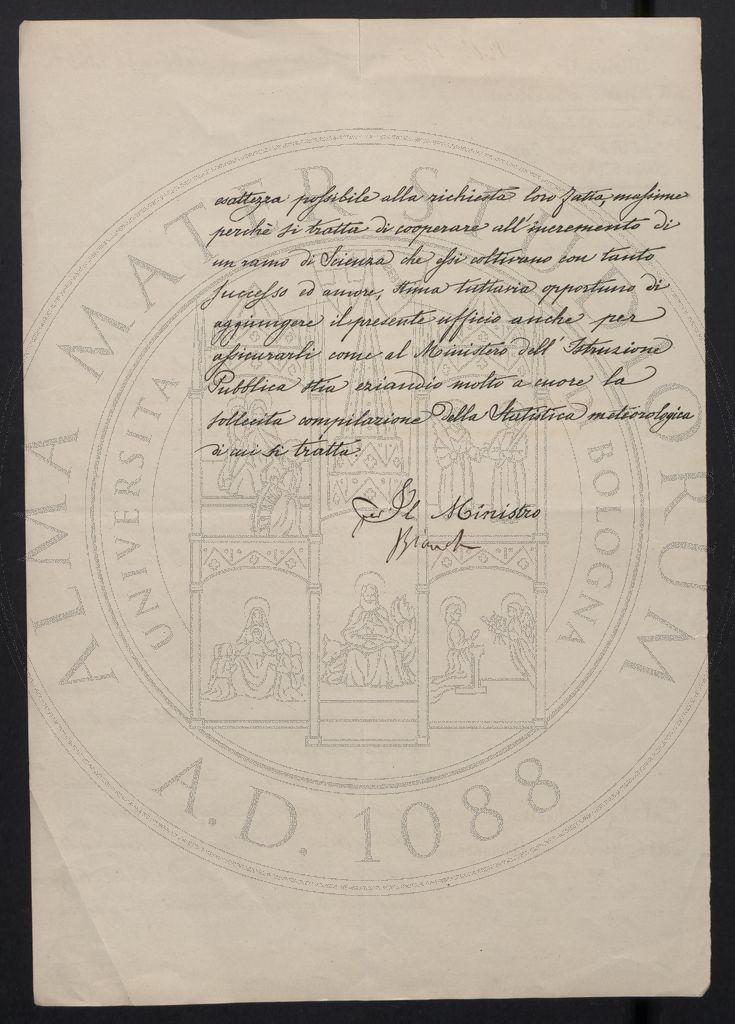 esattezza possibile alla richiesta loro fatta, massime
perchè si tratta di cooperare all'incremento di
un ramo di Scienza che essi coltivano con tanto
successo ed amore, stima tuttavia opportuno di
aggiungere il presente ufficio anche per
assicurarli come al Ministero dell'Istruzione
Pubblica stia eziandio molto a cuore la
sollecita compilazione della Statistica meteorologica
di cui si tratta.
per Il Ministro
ALMA MATER STUDIORUM
UNIVERSITA DI BOLOGNA
A.D. 1088